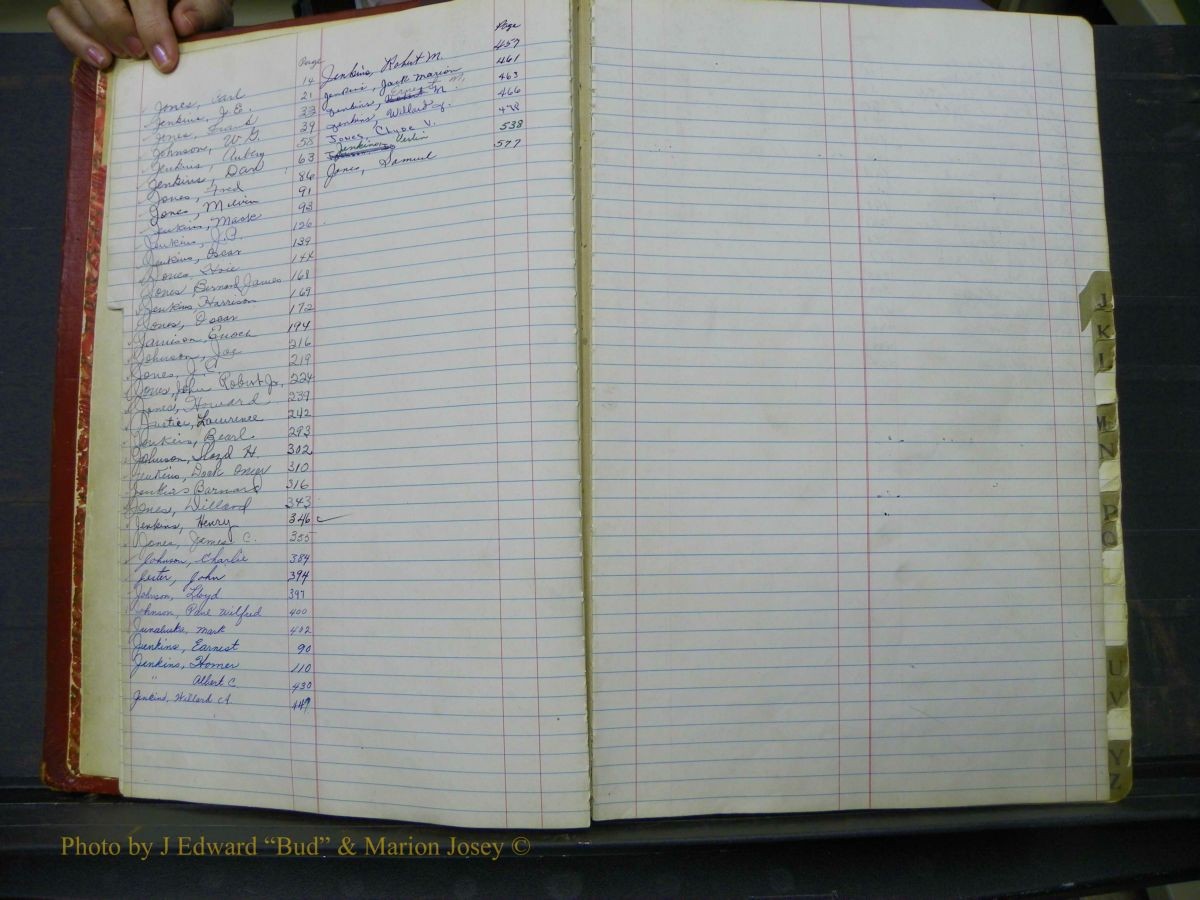 Page
Jones, Carl 14
Jenkins, J.E. 21
Jones, Grand 33
Johnson, W.G. 39
Jenkins, Aubery 58
Jenkins, Dan 63
Jones, Fred 86
Jones, Melvin 91
Jenkins, Mack 93
Jenkins, J.P. 126
Jenkins, Oscar 139
Jones, 144
Jones Bernard James 168
Jenkins, Harrison 169
Jones, Oscar 172
Jamison, Enoch 194
Johnson, Joe 216
Jones, J. 219
Jones, John Robert Jr. 224
Jones, Howard 239
Justice, Lawrence 242
Jenkins, Pearl 293
Johnson, Lloyd H. 302
Jenkins, Dock Omer 310
Jenkins Barnard 316
Jones, Dillard 343
Jenkins, Henry 346
Jones, James C. 355
Johnson, Charlie 384
John 394
Johnson, Lloyd 397
Johnson, Paul Wilfred 400
Junaluska, Mark 402
Jenkins, Earnest 90
Jenkins, Homer 110
" Albert C 430
Jenkins, Willard A 449
Page
Jenkins, Robert M. 457
Jenkins, Jack Marion 461
Jenkins, Ernest M. 463
Jenkins, Willard J. 466
Jones, Clyde V. 478
Jenkins, Verlin 538
Jones, Samuel 577
J
K
L
M
N
P
Q
U
V
Y
Z
Photo by J Edward “Bud” & Marion Josey ©